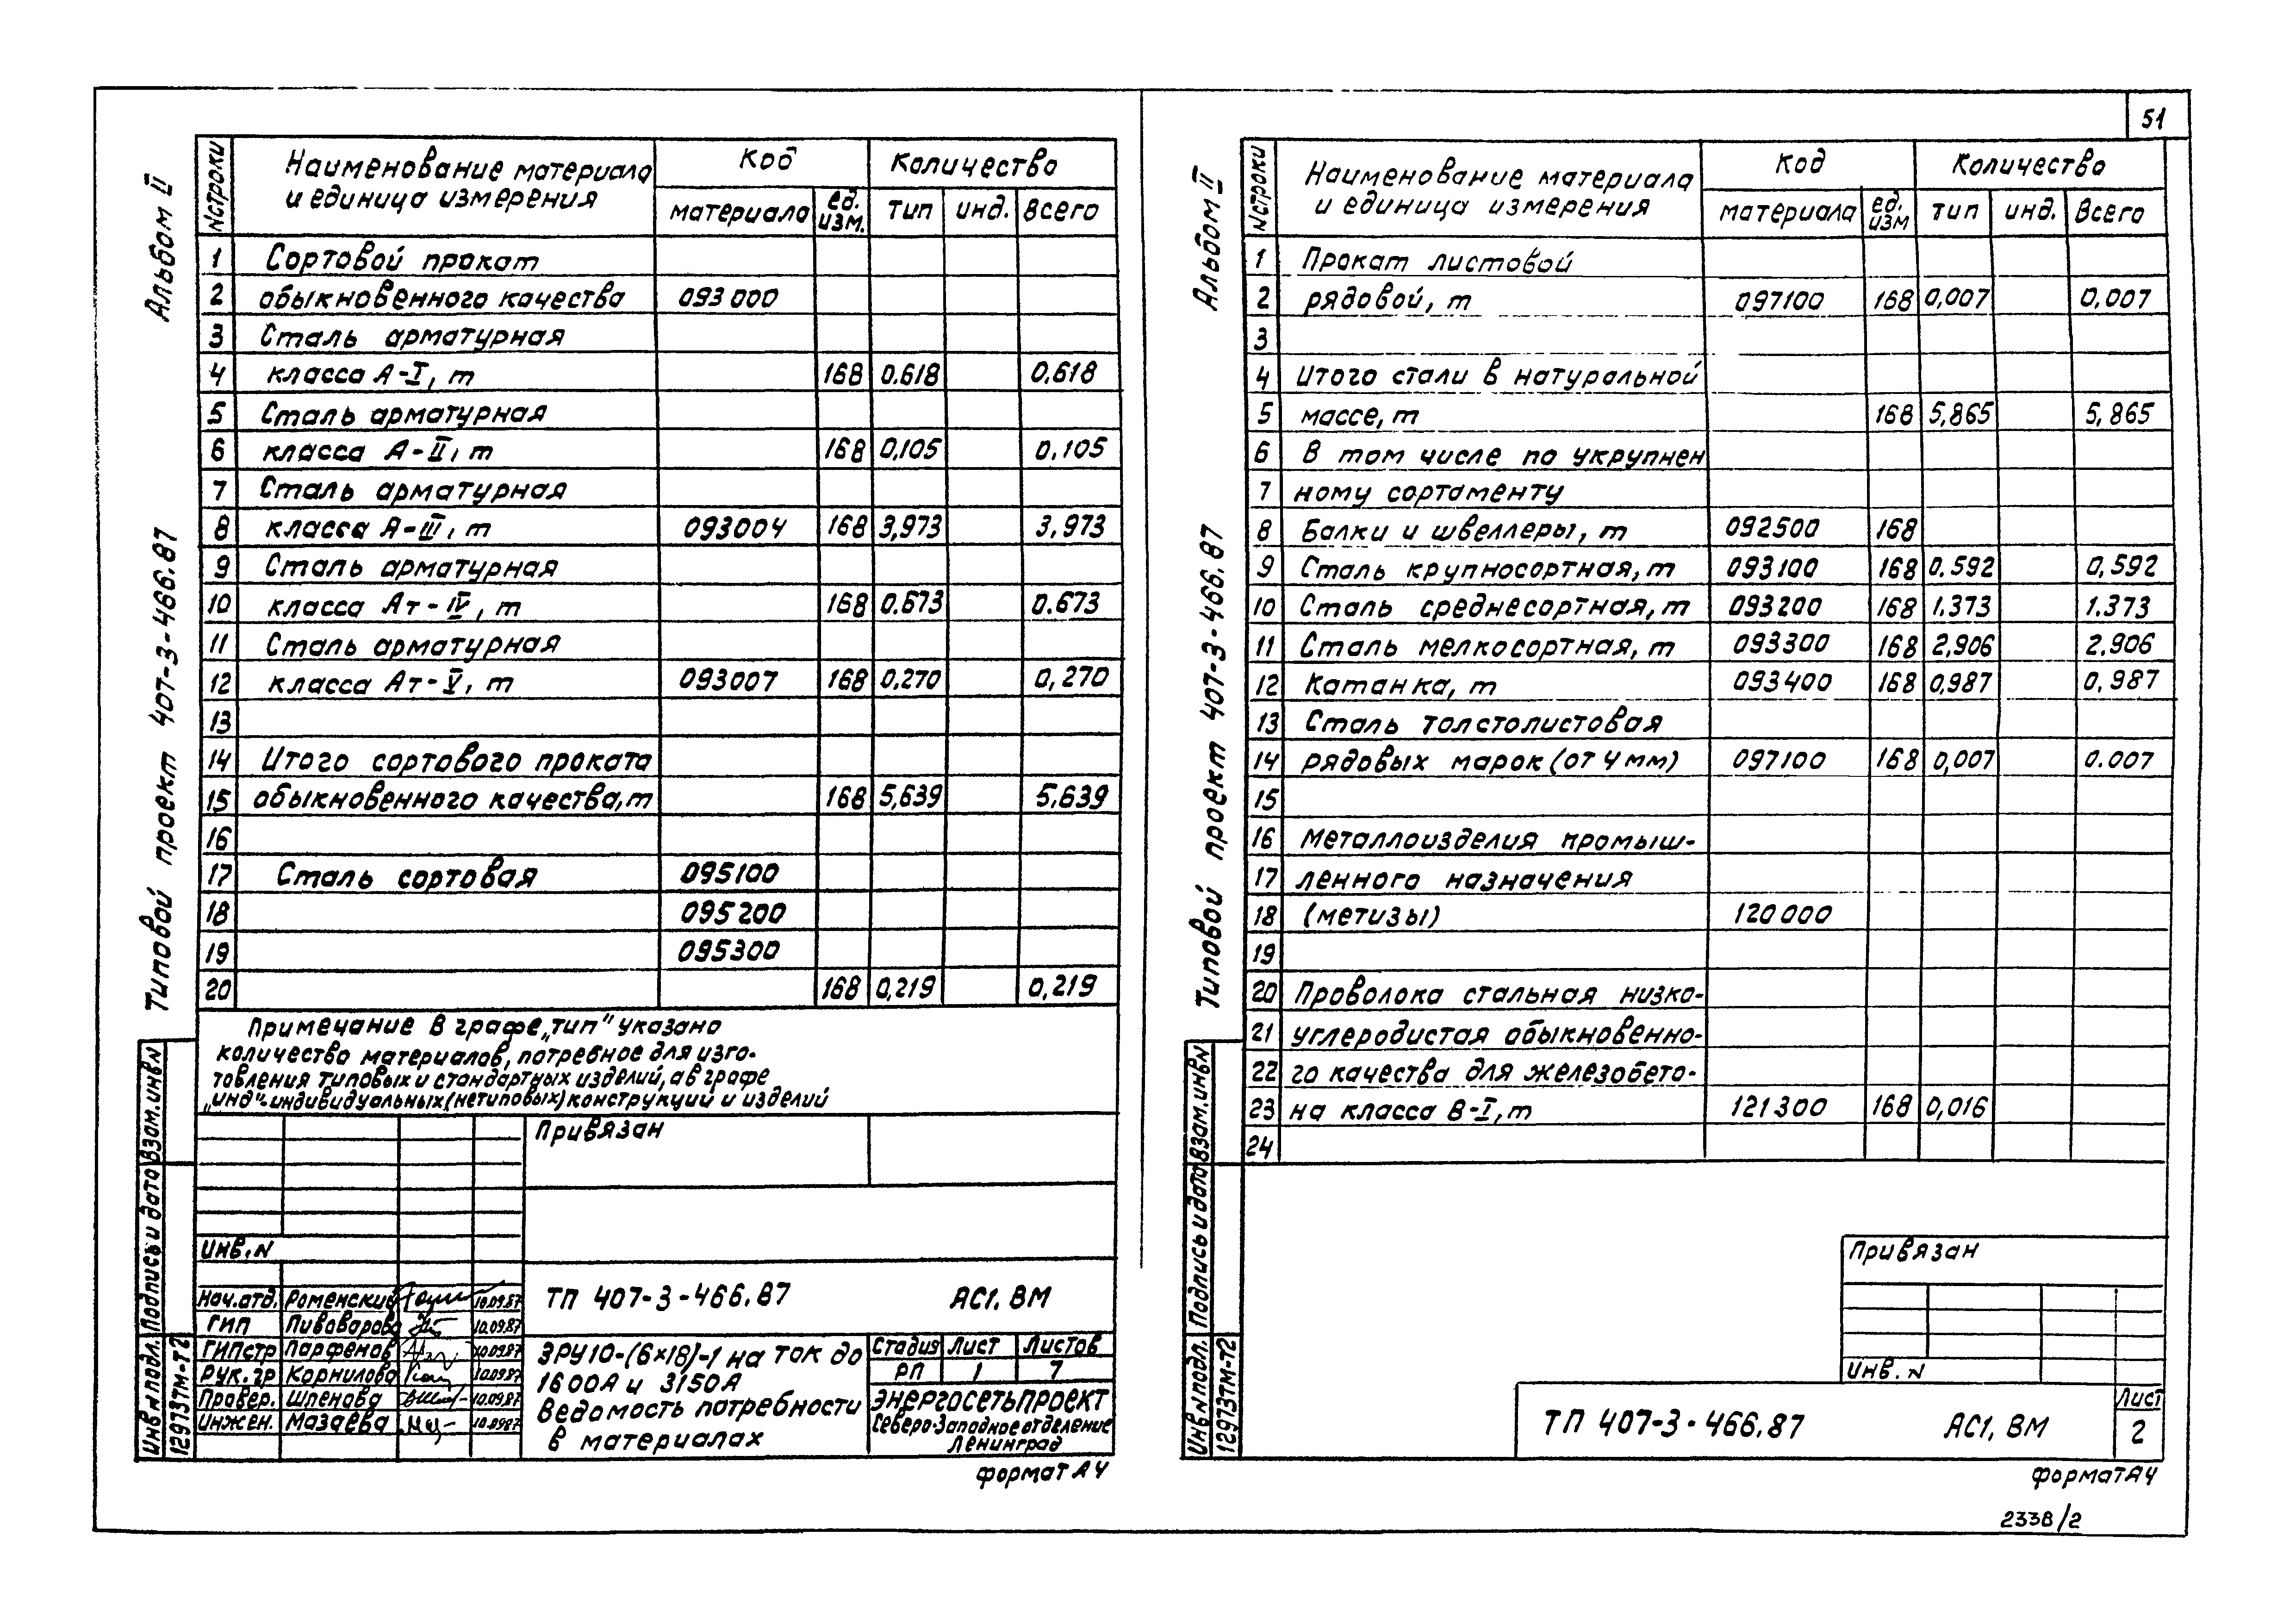 51
Альбом II
Типовой проект 407-3-466.87
N строки Наименование материала и единица измерения Код Количество
материала ед. изм. тип инд. Всего
1 Сортовой прокат
2 обыкновенного качества 093000
3 Сталь арматурная
4 класса А-I, т 168 0.618 0,618
5 Сталь арматурная
6 класса А-II, т 168 0,105 0,105
7 Сталь арматурная
8 класса А-III, т 093004 168 3,973 3,973
9 Сталь арматурная
10 класса Ат-IV, т 168 0.673 0.673
11 Сталь арматурная
12 класса Ат-V, т 093007 168 0,270 0,270
13
14 Итого сортового проката
15 обыкновенного качества, т 168 5,639 5,639
16
17 Сталь сортовая 095100
18 095200
19 095300
20 168 0,219 0,219
Примечание В графе „тип" указано
количество материалов, потребное для изго-
товления типовых и стандартных изделий, а в графе
„инд"-индивидуальных (нетиповых) конструкций и изделий
Привязан
Инв. N
Нач.отд. Роменский 10.09.87
ГИП Пивоварова 10.09.87
ГИПстр Парфенов 10.09.87
Рук.гр Корнилова 10.09.87
Провер. Шленова 10.09.87
Инжен. Мазаева 10.09.87
ТП 407-3-466.87 АС1. ВМ
ЗРУ10-(6×18)-1 на ток до
1600А и 3150А
Ведомость потребности
в материалах
Стадия Лист Листов
РП 1 7
ЭНЕРГОСЕТЬПРОЕКТ
Северо-Западное отделение
Ленинград
формат А4
Инв N подл. Подпись и дата Взам. инв N
12973тм-т2
Альбом II
Типовой проект 407-3-466.87
N строки Наименование материала и единица измерения Код Количество
материала ед. изм тип инд. Всего
1 Прокат листовой
2 рядовой, т 097100 168 0,007 0,007
3
4 Итого стали в натуральной
5 массе, т 168 5,865 5,865
6 В том числе по укрупнен
7 ному сортаменту
8 Балки и швеллеры, т 092500 168
9 Сталь крупносортная, т 093100 168 0.592 0,592
10 Сталь среднесортная, т 093200 168 1.373 1.373
11 Сталь мелкосортная, т 093300 168 2,906 2,906
12 Катанка, т 093400 168 0,987 0,987
13 Сталь толстолистовая
14 рядовых марок (от 4 мм) 097100 168 0,007 0.007
15
16 Металлоизделия промыш-
17 ленного назначения
18 (метизы) 120000
19
20 Проволока стальная низко-
21 углеродистая обыкновенно-
22 го качества для железобето-
23 на класса В-I, т 121300 168 0,016
24
Привязан
Инв. N
ТП 407-3-466.87 АС1, ВМ
Лист
2
формат А4
Инв N подл. Подпись и дата Взам. инв N
12973тм-т2
2338/2